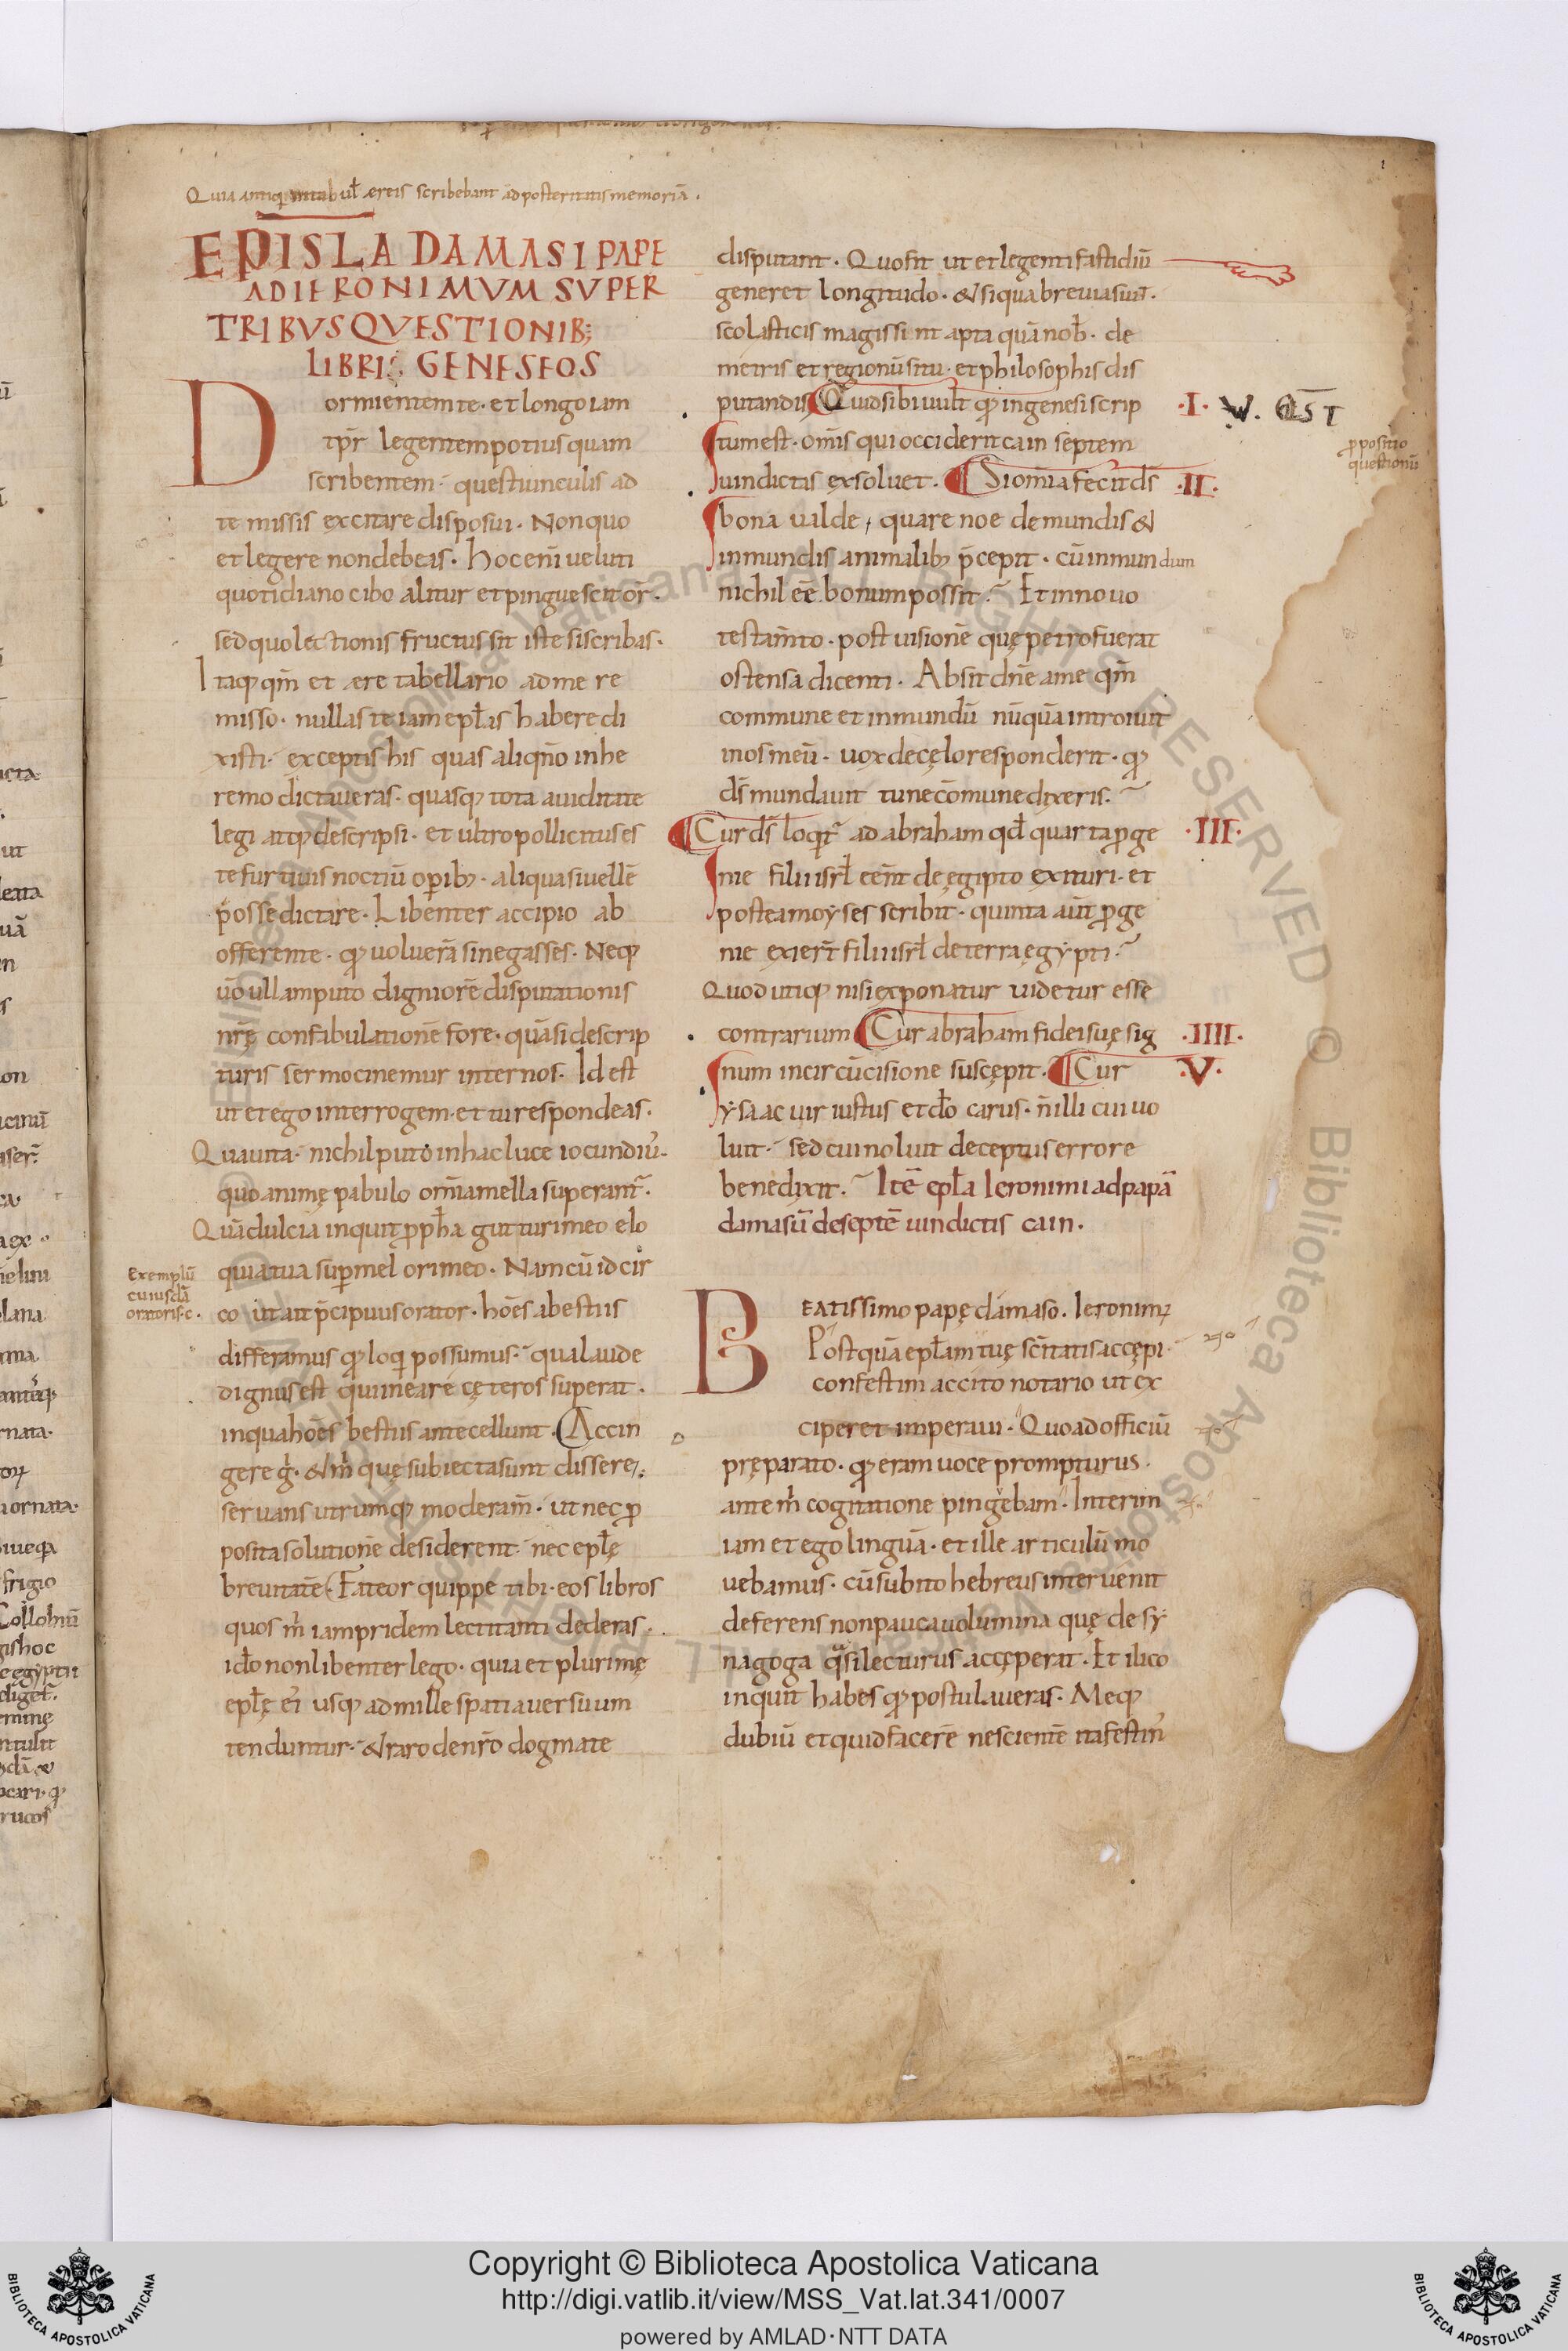 Quia antiqui in tabul̄ æreis scribebant ad posteritatis memoriā.
EPISL̄A DAMASI PAPE
AD IERONIMVM SVPER
TRIBVS QVESTIONIB;
LIBRI GENESEOS
Dormientem te· et longo iam
tp̄r legentem potius quam
scribentem· questiunculis ad
te missis excitare disposui. Non quo
et legere non debeas. Hoc eni̅ veluti
quotidiano cibo alitur et pinguescit or̄.
sed quo lectionis fructus sit iste si scribas.
Itaq; qm̄ et ære tabellario ad me re
misso· nullas te iam epl̄as habere di
xisti· exceptis his quas aliqn̄o in he
remo dictaveras· quasq; tota aviditate
legi atq; descripsi· et ultro pollicitus es
te furtivis noctiū opib;· aliqua si vellē
posse dictare. Libenter accipio ab
offerente· qđ voluerā si negasses. Neq;
ūo ullam puto digniorē disputationis
nr̄ę confabulationē fore· quā si descrip
turis sermocinemur inter nos. Id est
ut et ego interrogem· et tu respondeas.
Qua vita· nichil puto in hac luce iocundiu᾽·
quo animę pabulo om̄ia mella superant᾽.
Quā dulcia inquit ꝓph̄a gutturi meo elo
quia tua suꝑ mel ori meo. Nam cū idcir
Exemplū
cuiusdā
oratoris·c·
co ut ait p̄cipuus orator· hoēs a bestiis
differamus qđ loqi possumus· qua laude
dignus est qui in ea re cęteros superat·
in qua hoēs bestiis antecellunt. Accin
gere g̊· & m̄ quę subiecta sunt dissere
servans utrumq; moderam̄· ut nec ꝓ
posita solutionē desiderent· nec epl̄ę
brevitatē· Fateor quippe tibi· eos libros
quos m̄ iampridem lectitanti dederas·
ido̅ non libenter lego· quia et plurimę
epl̄ę eı̅ usq; ad mille spatia versuum
tenduntur· & raro de nr̄o dogmate
disputant. Quo fit ut et legenti fastidiū
generet longitudo· & si qua brevia sun̄t·
scolasticis magis sint apta quā nob̄· de
metris et regionū situ· et philosophis dis
putandis Quid sibi vult qđ in genesi scrip
·I· V. QS̅T
tum est· om̄is qui occiderit cain septem
ꝓpositio
questionū
vindictas exsolvet. Si om̄ia fecit ds̄
·II·
bona valde, quare noe de mundis &
inmundis animalib; p̄cepit· cū inmundum
nichil eē bonum possit. Et in novo
testam̄to· post visionē quę petro fuerat
ostensa dicenti. Absit dn̄e a me qm̄
commune et inmundū nūquā introivit
in os meū· vox de cęlo responderit· qđ
ds̄ mundavit tu ne cōmune dixeris.
Cur ds̄ loqit᾽ ad abraham qd̄ quarta ꝓge
·III·
nie filii isrl̄ eēnt de ęgipto exituri· et
postea moyses scribit· quinta aūt ꝓge
nie exier̄t filii isrl̄ de terra ęgypti.
Quod utiq; nisi exponatur videtur esse
contrarium Cur abraham fidei suę sig
·IIII·
num in circūcisione suscępit. Cur
·V·
ysaac vir iustus et do̅ carus· n̄ illi cui vo
luit· sed cui noluit deceptus errore
benedixit. Itē epl̄a Ieronimi ad papā
damasū de septē vindictis cain.
Beatissimo papę damaso. Ieronim᾽
Postquā epl̄am tuę sc̄itatis accępi·
confestim accito notario ut ex
ciperet imperavi· Quo ad officiū
pręparato· qđ eram voce prompturus·
ante m̄ cogitatione pingebam· Interim
iam et ego linguā· et ille articulū mo
vebamus· cū subito hebreus intervenit
deferens non pauca volumina quę de sy
nagoga q̄si lecturus accęperat. Et ilico
inquit habes qđ postulaveras. Meq;
dubiū et quid facerē nescientē ita festin᾽
Copyright © Biblioteca Apostolica Vaticana
http://digi.vatlib.it/view/MSS_Vat.lat.341/0007
powered by AMLAD·NTT DATA
BIBLIOTECA APOSTOLICA VATICANA
BIBLIOTECA APOSTOLICA VATICANA